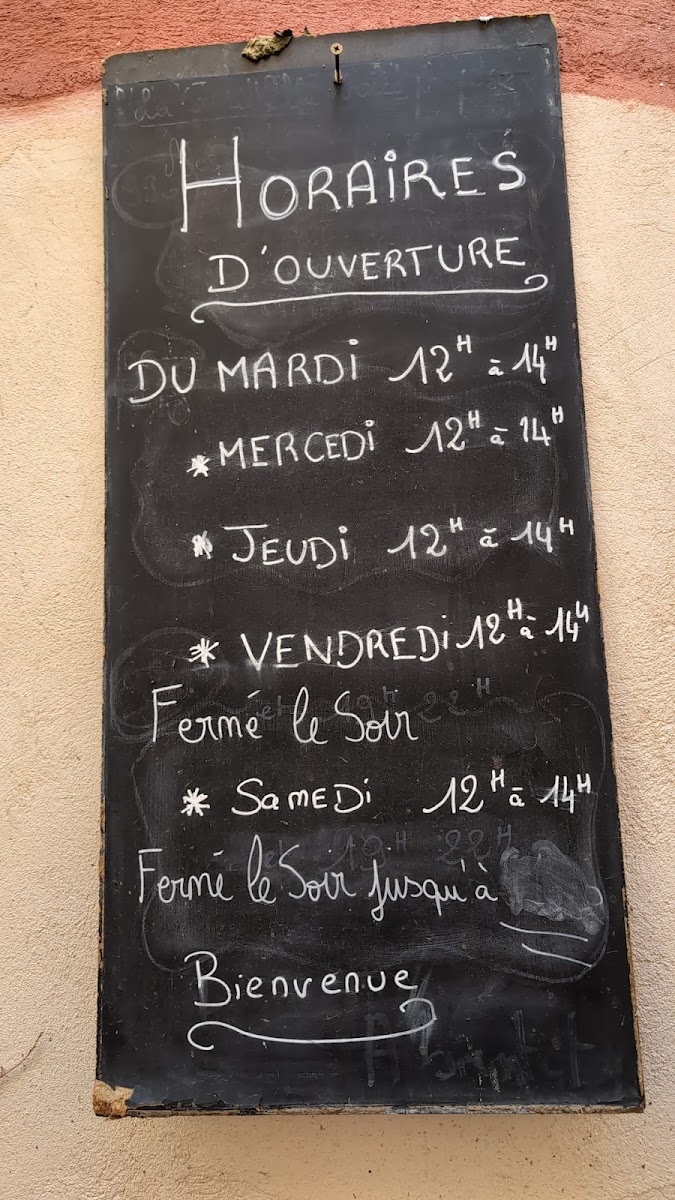 HORAIRES
D'OUVERTURE
DU MARDI 12H à 14H
* MERCEDI 12H à 14H
* JEUDI 12H à 14H
* VENDREDI 12H à 14H
Fermé le Soir
22H
* SAMEDI 12H à 14H
19H 22H
Fermé le Soir jusqu'à
Bienvenue